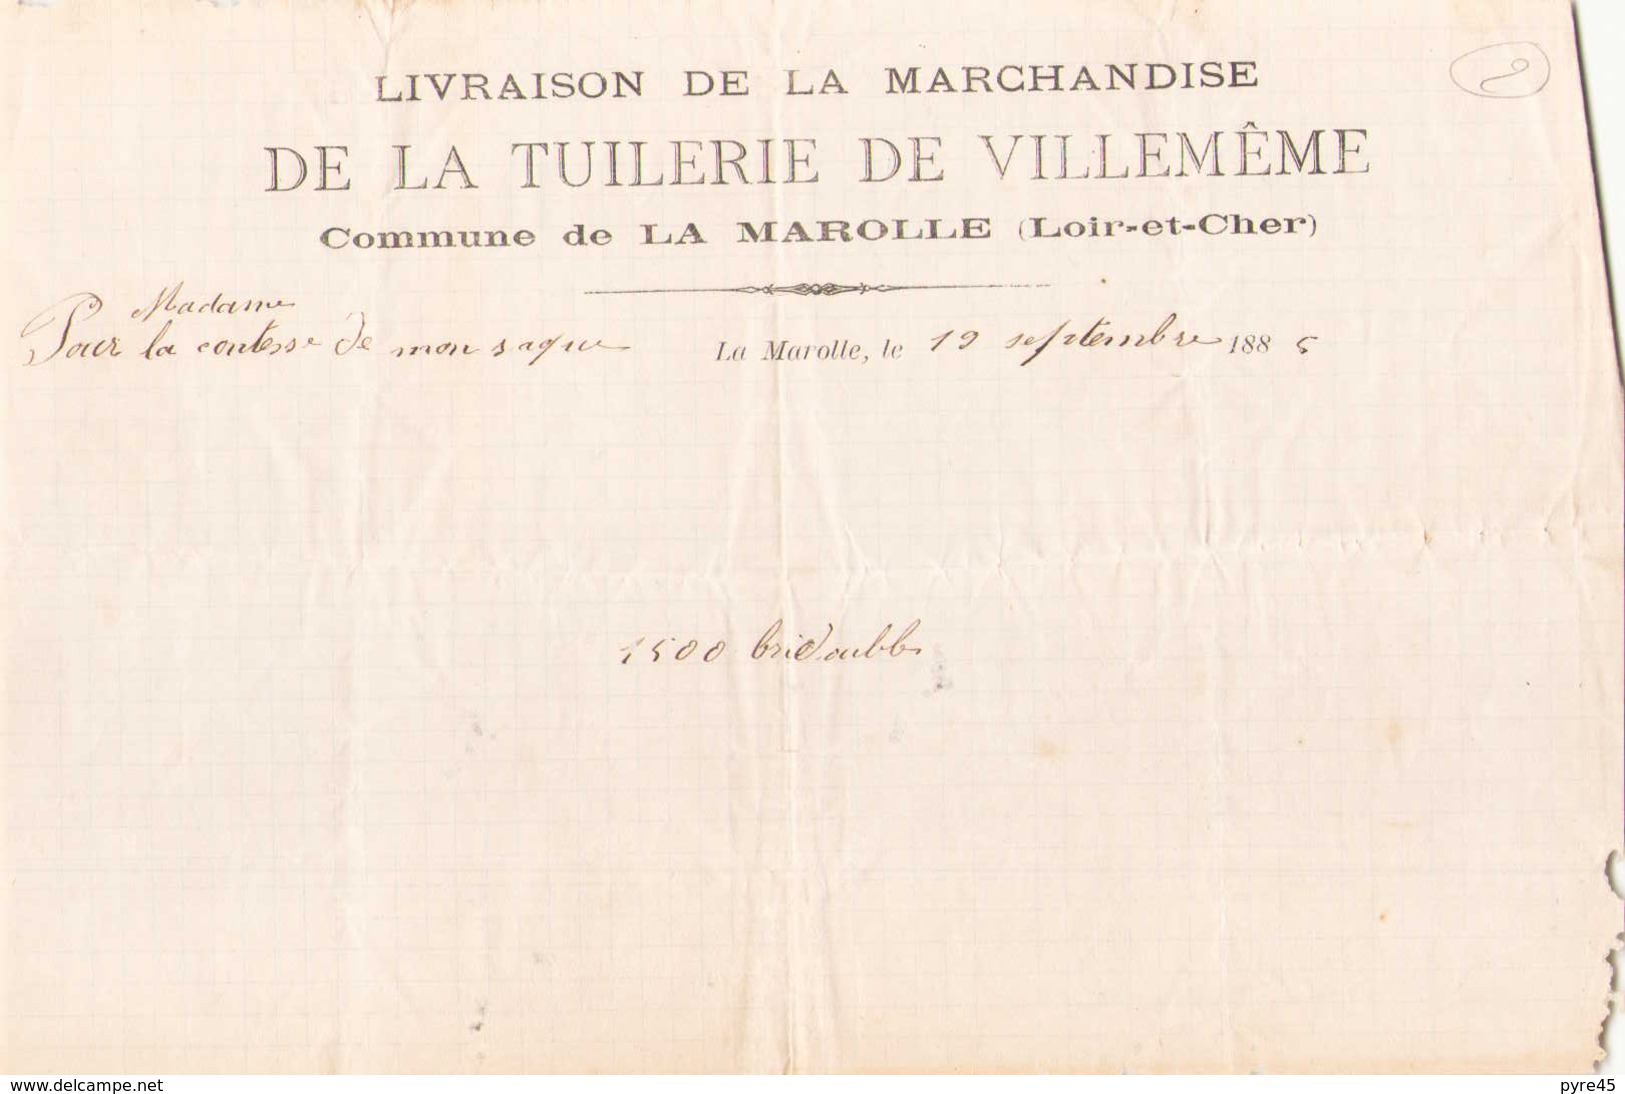 LIVRAISON DE LA MARCHANDISE
DE LA TUILERIE DE VILLEMÊME
Commune de LA MAROLLE (Loir-et-Cher)
Madame
Pour la contesse de mon saque La Marolle, le 19 septembre 1885
1500 bri doubles
www.delcampe.net
pyre45